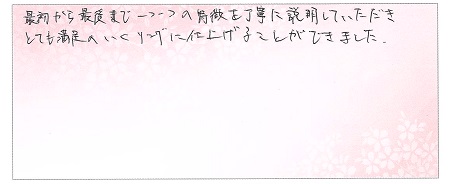 最初から最後まで一つ一つの特徴を丁寧に説明していただき
とても満足のいくリングに仕上げることができました.